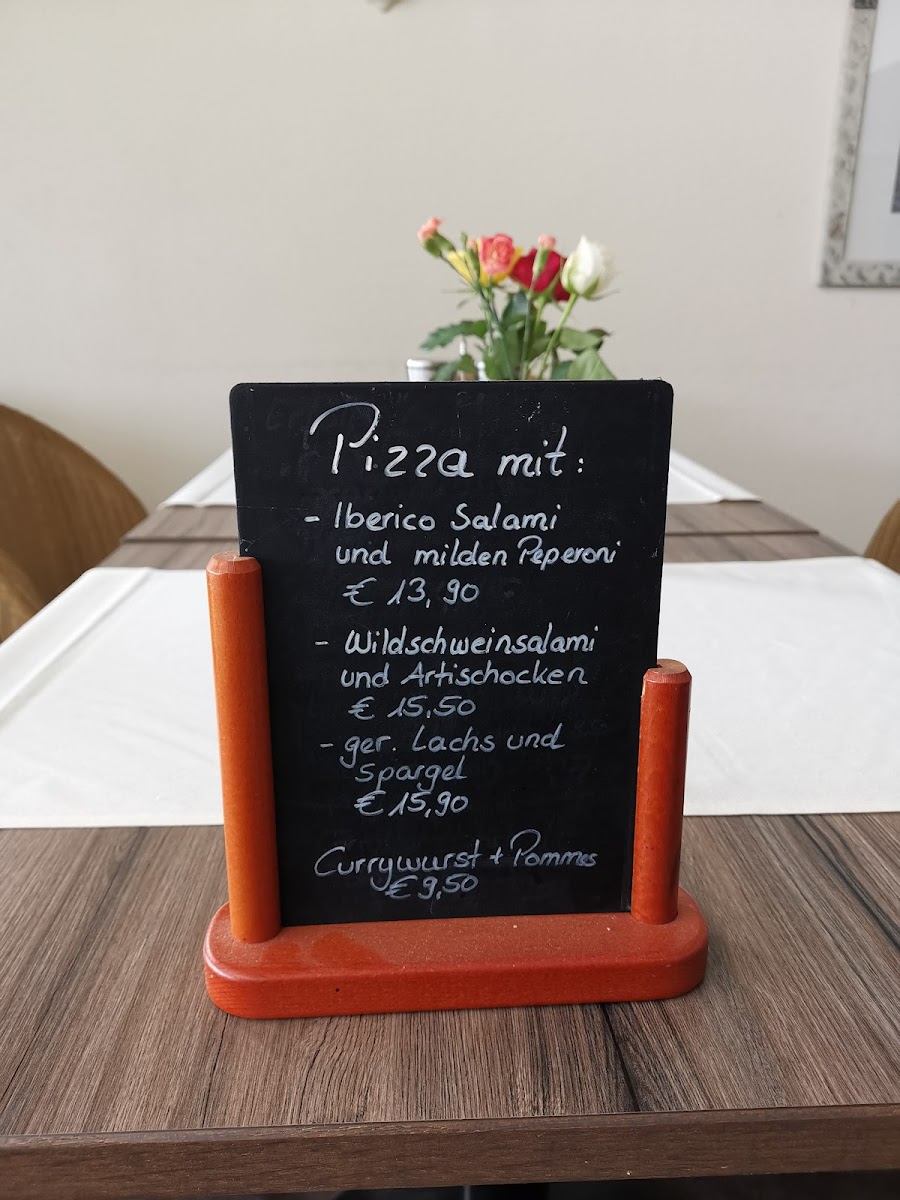 Pizza mit:
- Iberico Salami
und milden Peperoni
€ 13,90
- Wildschweinsalami
und Artischocken
€ 15,50
- ger. Lachs und
Spargel
€ 15,90
Currywurst + Pommes
€ 9,50